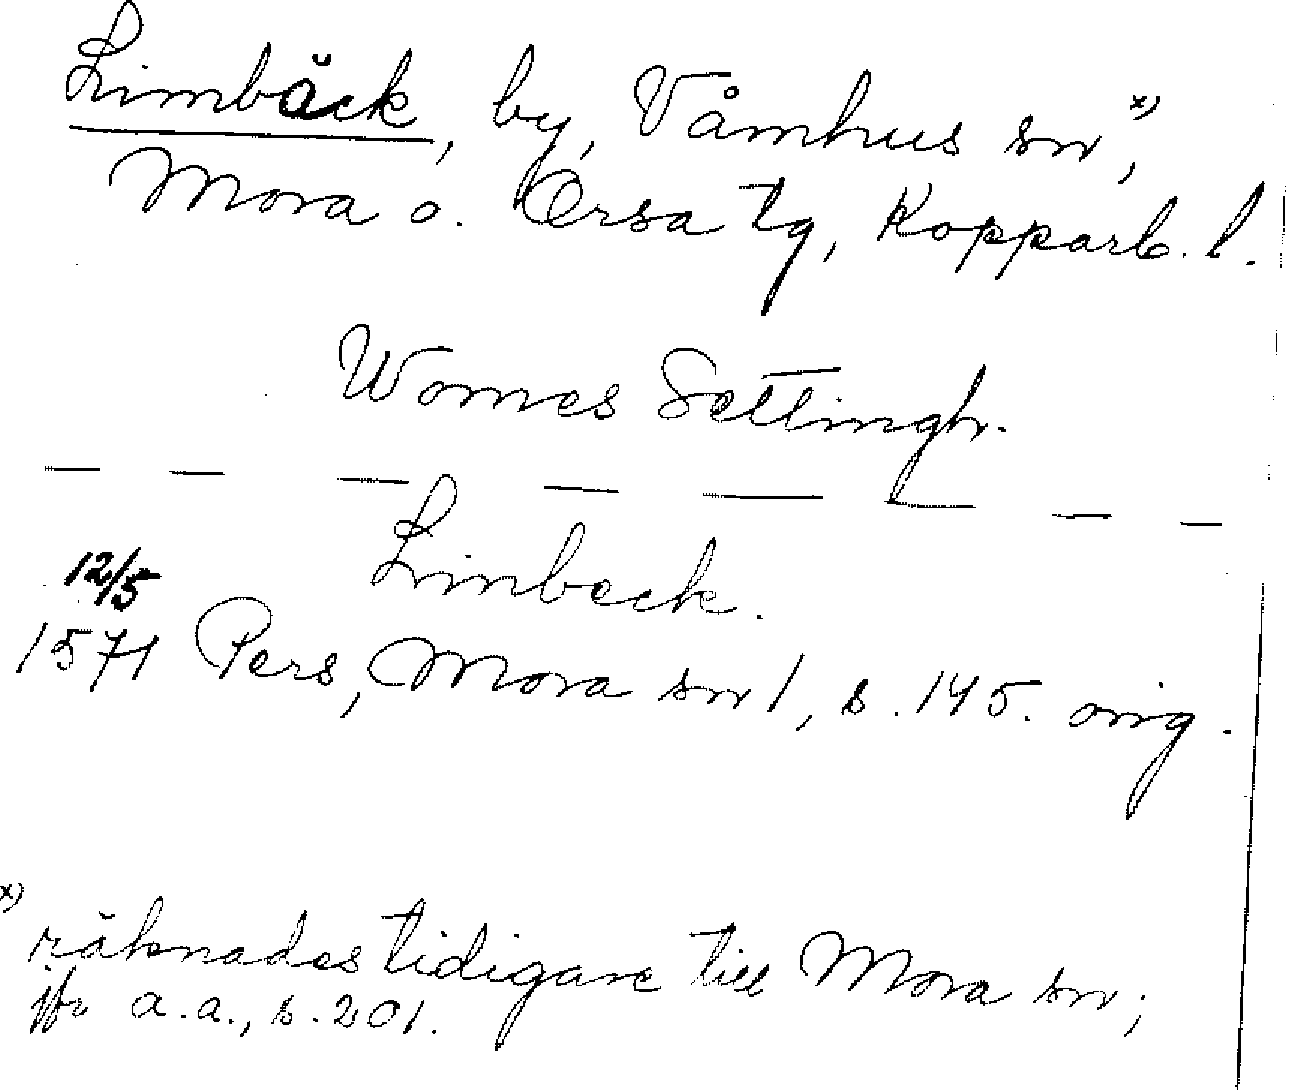 Limbäck, by, Våmhus sn, x)
Mora o. Orsa tg, Kopparb. l.
Womes Settingh.
— — — — — — — —
Limbeck.
12/5
1571 Pers, Mora sn 1, s. 145. orig.
x) räknades tidigare till Mora sn;
jfr a.a., s. 201.